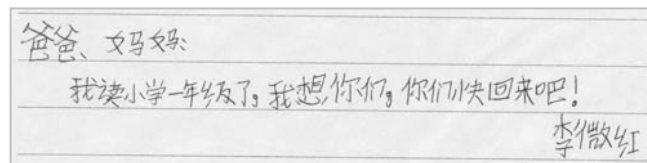 爸爸、妈妈:
我读小学一年级了。我想你们,你们快回来吧!
李微红